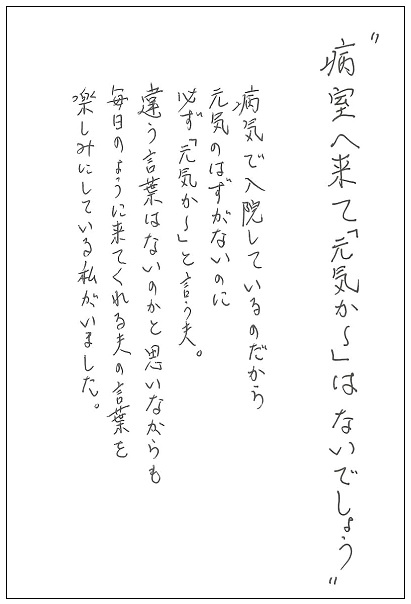 "病室へ来て「元気か～」はないでしょう"
病気で入院しているのだから
元気のはずがないのに
必ず「元気か～」と言う夫。
違う言葉はないのかと思いながらも
毎日のように来てくれる夫の言葉を
楽しみにしている私がいました。